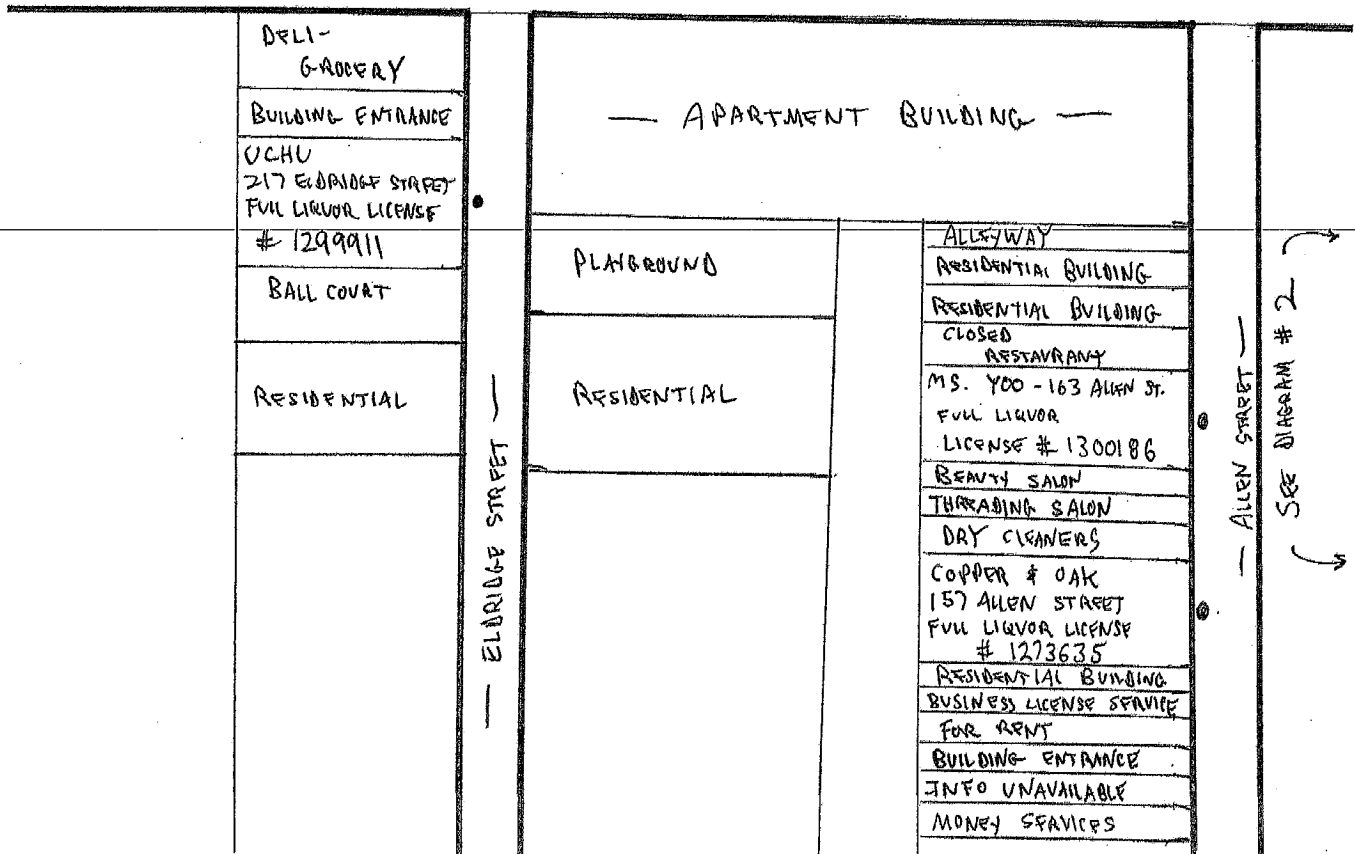 DELI-
GROCERY
BUILDING ENTRANCE
UCHU
217 ELDRIDGE STREET
FULL LIQUOR LICENSE
# 1299911
BALL COURT
RESIDENTIAL
— ELDRIDGE STREET —
— APARTMENT BUILDING —
PLAYGROUND
RESIDENTIAL
ALLEYWAY
RESIDENTIAL BUILDING
RESIDENTIAL BUILDING
CLOSED
RESTAURANT
MS. YOO - 163 ALLEN ST.
FULL LIQUOR
LICENSE # 1300186
BEAUTY SALON
THREADING SALON
DRY CLEANERS
COPPER & OAK
157 ALLEN STREET
FULL LIQUOR LICENSE
# 1273635
RESIDENTIAL BUILDING
BUSINESS LICENSE SERVICE
FOR RENT
BUILDING ENTRANCE
INFO UNAVAILABLE
MONEY SERVICES
— ALLEN STREET —
SEE DIAGRAM # 2